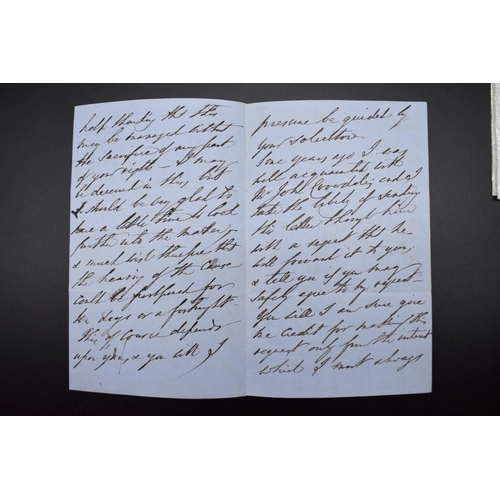 help thinking that this
may be managed without
the sacrifice of any part
of your rights – I may
be deceived in this but
I should be very glad to
have a little time to look
further into the matter
& much wish therefore that
the hearing of the Cause
could be postponed for
ten days or a fortnight
This of course depends
upon you, & you will I
presume be guided by
your solicitor
Some years ago I was
well acquainted with
Mr John and I
take the liberty of sending
this letter through him
with a request that he
will forward it to you,
& tell you if you may
safely agree to my request –
You will I am sure give
me credit for making this
request only from the interest
which I must always